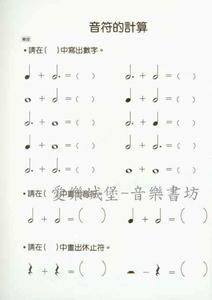 音符的計算
• 請在( )中寫出數字。
+ = ( ) + = ( )
+ = ( ) + = ( )
+ = ( ) + = ( )
+ = ( ) + = ( )
+ = ( ) + = ( )
• 請在( )中畫出音符。
愛樂城堡-音樂書坊
+ = ( ) + = ( )
• 請在( )中畫出休止符。
+ = ( ) - = ( )